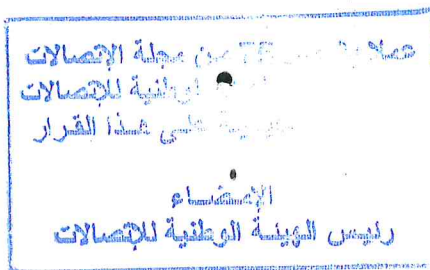 عملا من مجلة الإتصالات
الوطنية للإتصالات
على هذا القرار
الإمضاء
رئيس الهيئة الوطنية للإتصالات